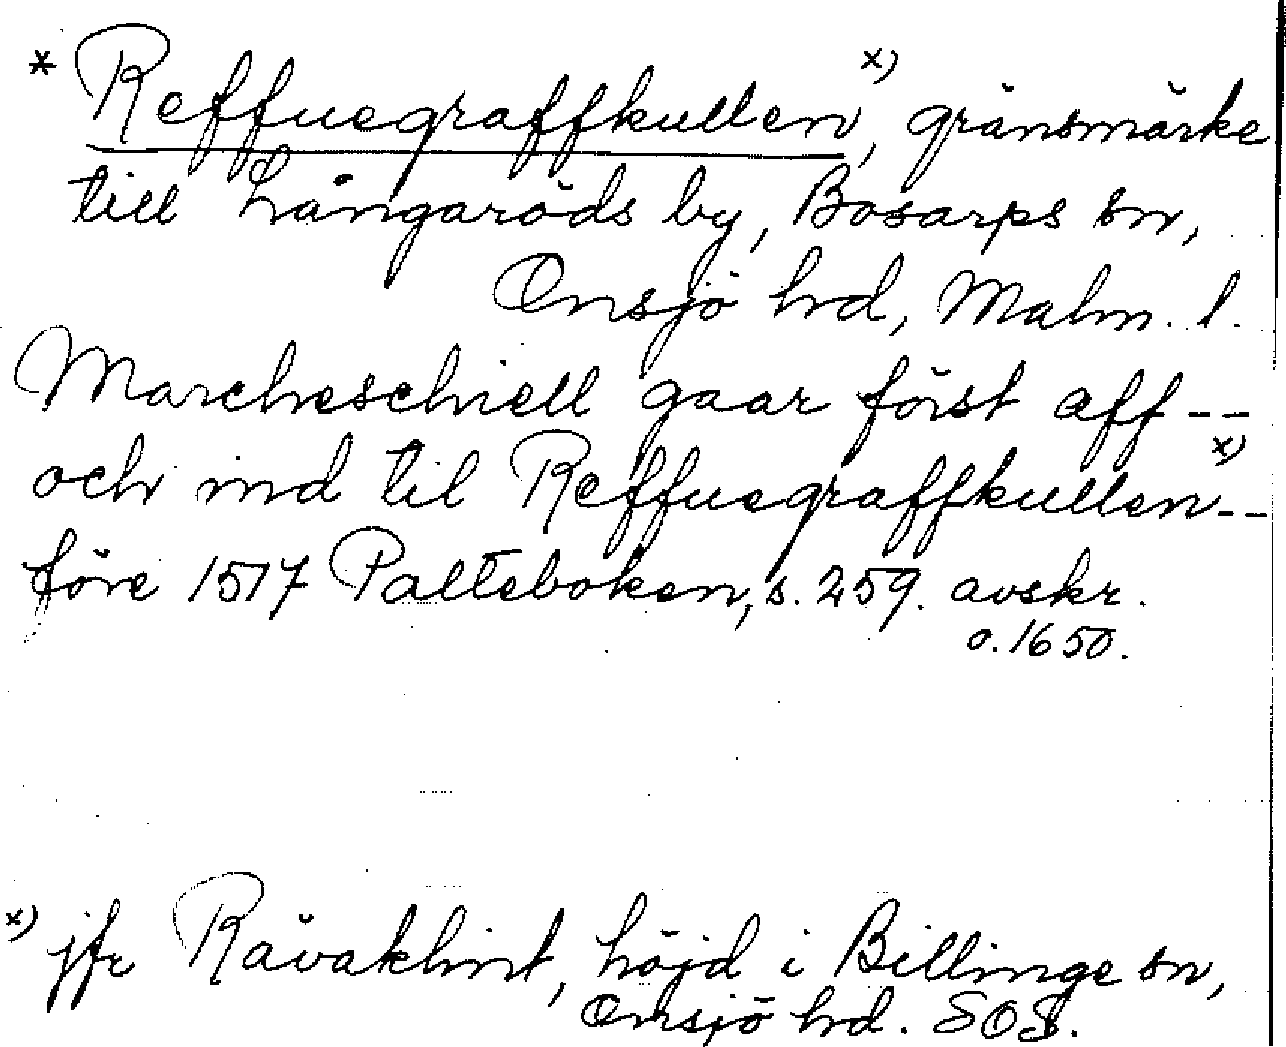 * Reffuegraffkullen x), gränsmärke
till Långaröds by, Bosarps sn,
Onsjö hd, Malm. l.
Marcheschiell gaar först aff --
och ind til Reffuegraffkullen x) --
före 1517 Palteboken, s. 259. avskr.
o. 1650.
x) jfr Rävaklint, höjd i Billinge sn,
Onsjö hd. SOS.